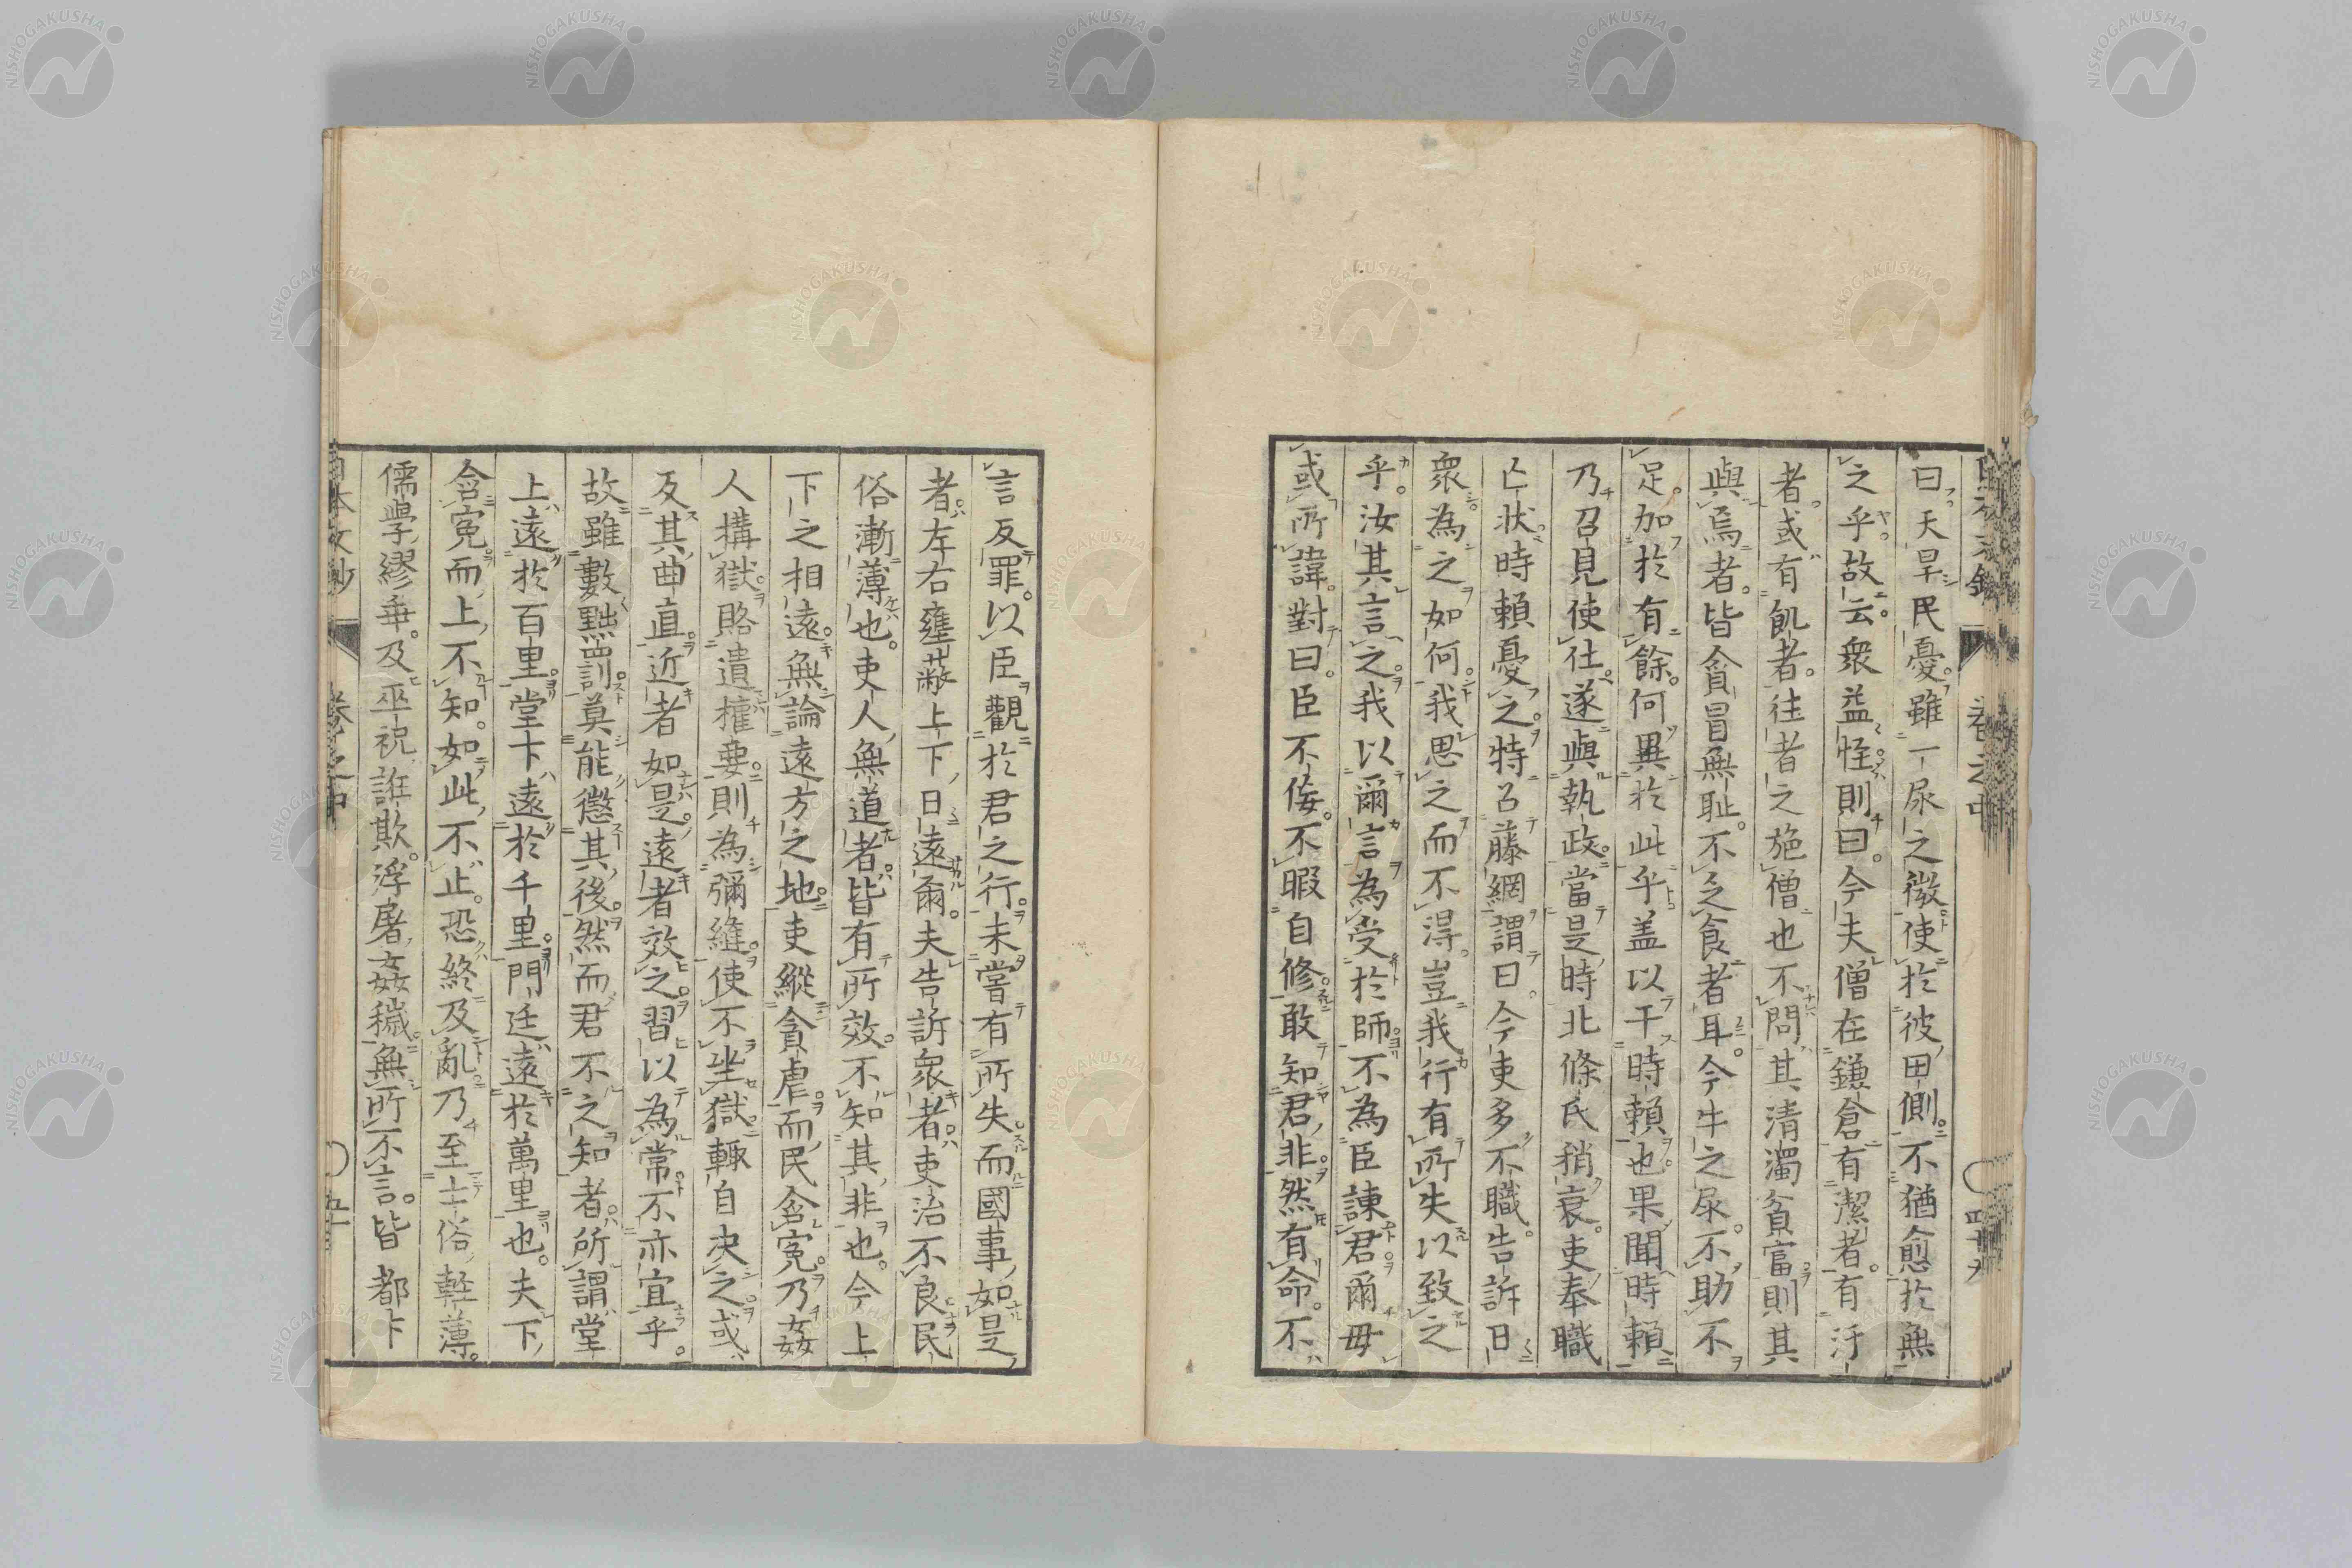 曰天旱民憂雖一尿之微使於彼田側不猶愈於無
之乎故云衆益怪則曰今夫僧在鎌倉有潔者有汙
者或有飢者往者之施僧也不問其清濁貧富則其
與焉者皆貪冒無耻不乏食者耳今牛之尿不助不
足加於有餘何異於此乎盖以干時賴也果聞時賴
乃召見使仕遂與執政當是時北條氏稍衰吏奉職
亡狀時賴憂之特召藤綱謂曰今吏多不職告訴日
衆為之如何我思之而不得豈我行有所失以致之
乎汝其言之我以爾言為受於師不為臣諫君爾毋
或所諱對曰臣不佞不暇自修敢知君非然有命不
言反罪以臣觀於君之行未嘗有所失而國事如是
者左右壅蔽上下日遠爾夫告訴衆者吏治不良民
俗漸薄也吏人無道者皆有所效不知其非也今上
下之相遠無論遠方之地吏縱貪虐而民含寃乃姦
人搆獄賂遺權要則為彌縫使不坐獄輒自决之或
及其曲直近者如是遠者效之習以為常不亦宜乎
故雖數黜罰莫能懲其後然而君不之知者所謂堂
上遠於百里堂下遠於千里門廷遠於萬里也夫下
含寃而上不知如此不止恐終及亂乃至士俗輕薄
儒學繆乖及巫祝誑欺浮屠姦穢無所不言皆都卞
日本文鈔 卷之中 五十
卷之中 四十九
NISHOGAKUSHA